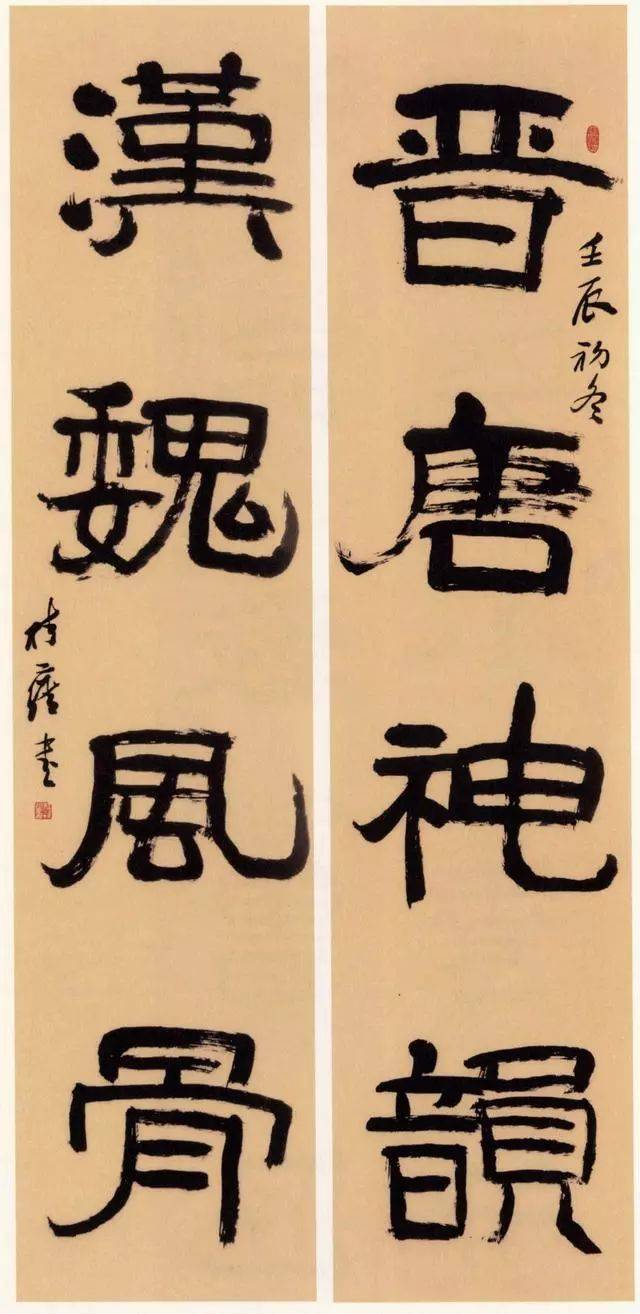 壬辰初冬
晋唐神韻
漢魏風骨
書